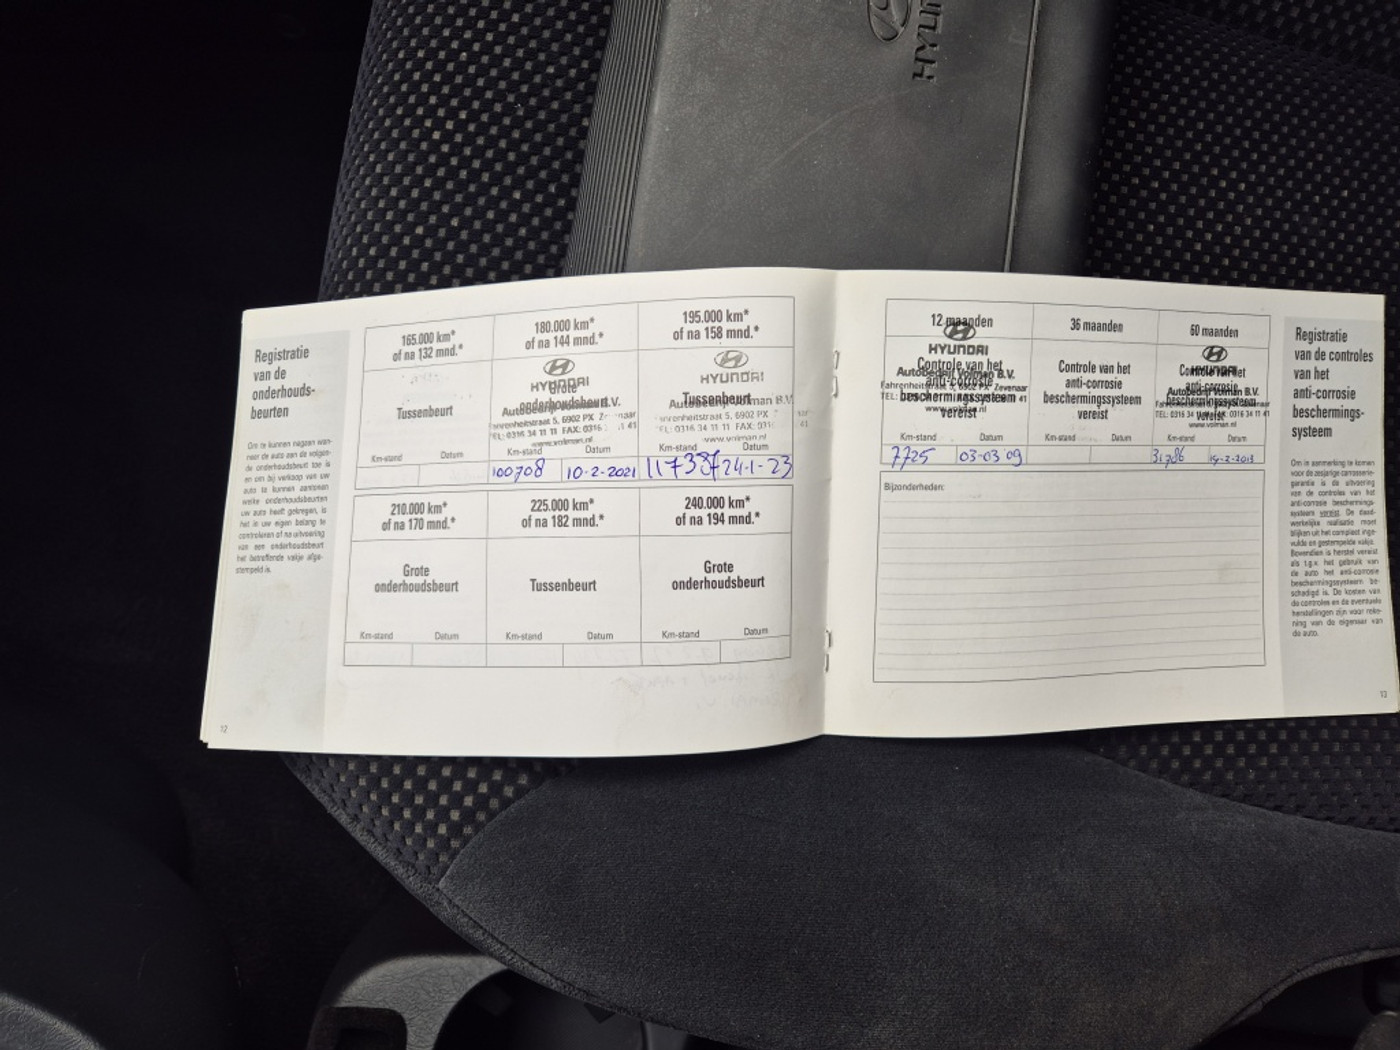 HYUN
Registratie
van de
onderhouds-
beurten
Om te kunnen nagaan wan-
neer de auto aan de volgen-
de onderhoudsbeurt toe is
en om bij verkoop van uw
auto te kunnen aantonen
welke onderhoudsbeurten
uw auto heeft gekregen, is
het in uw eigen belang te
controleren of na uitvoering
van een onderhoudsbeurt
het betreffende vakje afge-
stempeld is.
12
165.000 km*
of na 132 mnd.*
Tussenbeurt
Km-stand Datum
180.000 km*
of na 144 mnd.*
HYUNDAI
Grote
onderhoudsbeurt
Autobedrijf Volman B.V.
Fahrenheitstraat 5, 6902 PX Zevenaar
TEL: 0316 34 11 11 FAX: 0316 34 11 41
www.volman.nl
Km-stand Datum
100708 10-2-2021
195.000 km*
of na 158 mnd.*
HYUNDAI
Tussenbeurt
Autobedrijf Volman B.V.
Fahrenheitstraat 5, 6902 PX
TEL: 0316 34 11 11 FAX: 0316 41
www.volman.nl
Km-stand Datum
117337 24-1-23
210.000 km*
of na 170 mnd.*
Grote
onderhoudsbeurt
Km-stand Datum
225.000 km*
of na 182 mnd.*
Tussenbeurt
Km-stand Datum
240.000 km*
of na 194 mnd.*
Grote
onderhoudsbeurt
Km-stand Datum
12 maanden
HYUNDAI
Controle van het
anti-corrosie
beschermingssysteem
vereist
Autobedrijf Volman B.V.
Fahrenheitstraat 5, 6902 PX Zevenaar
www.volman.nl
Km-stand Datum
7725 03-03 09
36 maanden
Controle van het
anti-corrosie
beschermingssysteem
vereist
Km-stand Datum
60 maanden
HYUNDAI
Controle van het
anti-corrosie
beschermingssysteem
vereist
Autobedrijf Volman B.V.
TEL: 0316 34 11 11 FAX: 0316 34 11 41
www.volman.nl
Km-stand Datum
31786 14-2-2013
Bijzonderheden:
Registratie
van de controles
van het
anti-corrosie
beschermings-
systeem
Om in aanmerking te komen
voor de zesjarige carrosserie-
garantie is de uitvoering
van de controles van het
anti-corrosie beschermings-
systeem vereist. De daad-
werkelijke realisatie moet
blijken uit het compleet inge-
vulde en gestempelde vakje.
Bovendien is herstel vereist
als t.g.v. het gebruik van
de auto het anti-corrosie
beschermingssysteem be-
schadigd is. De kosten van
de controles en de eventuele
herstellingen zijn voor reke-
ning van de eigenaar van
de auto.
13